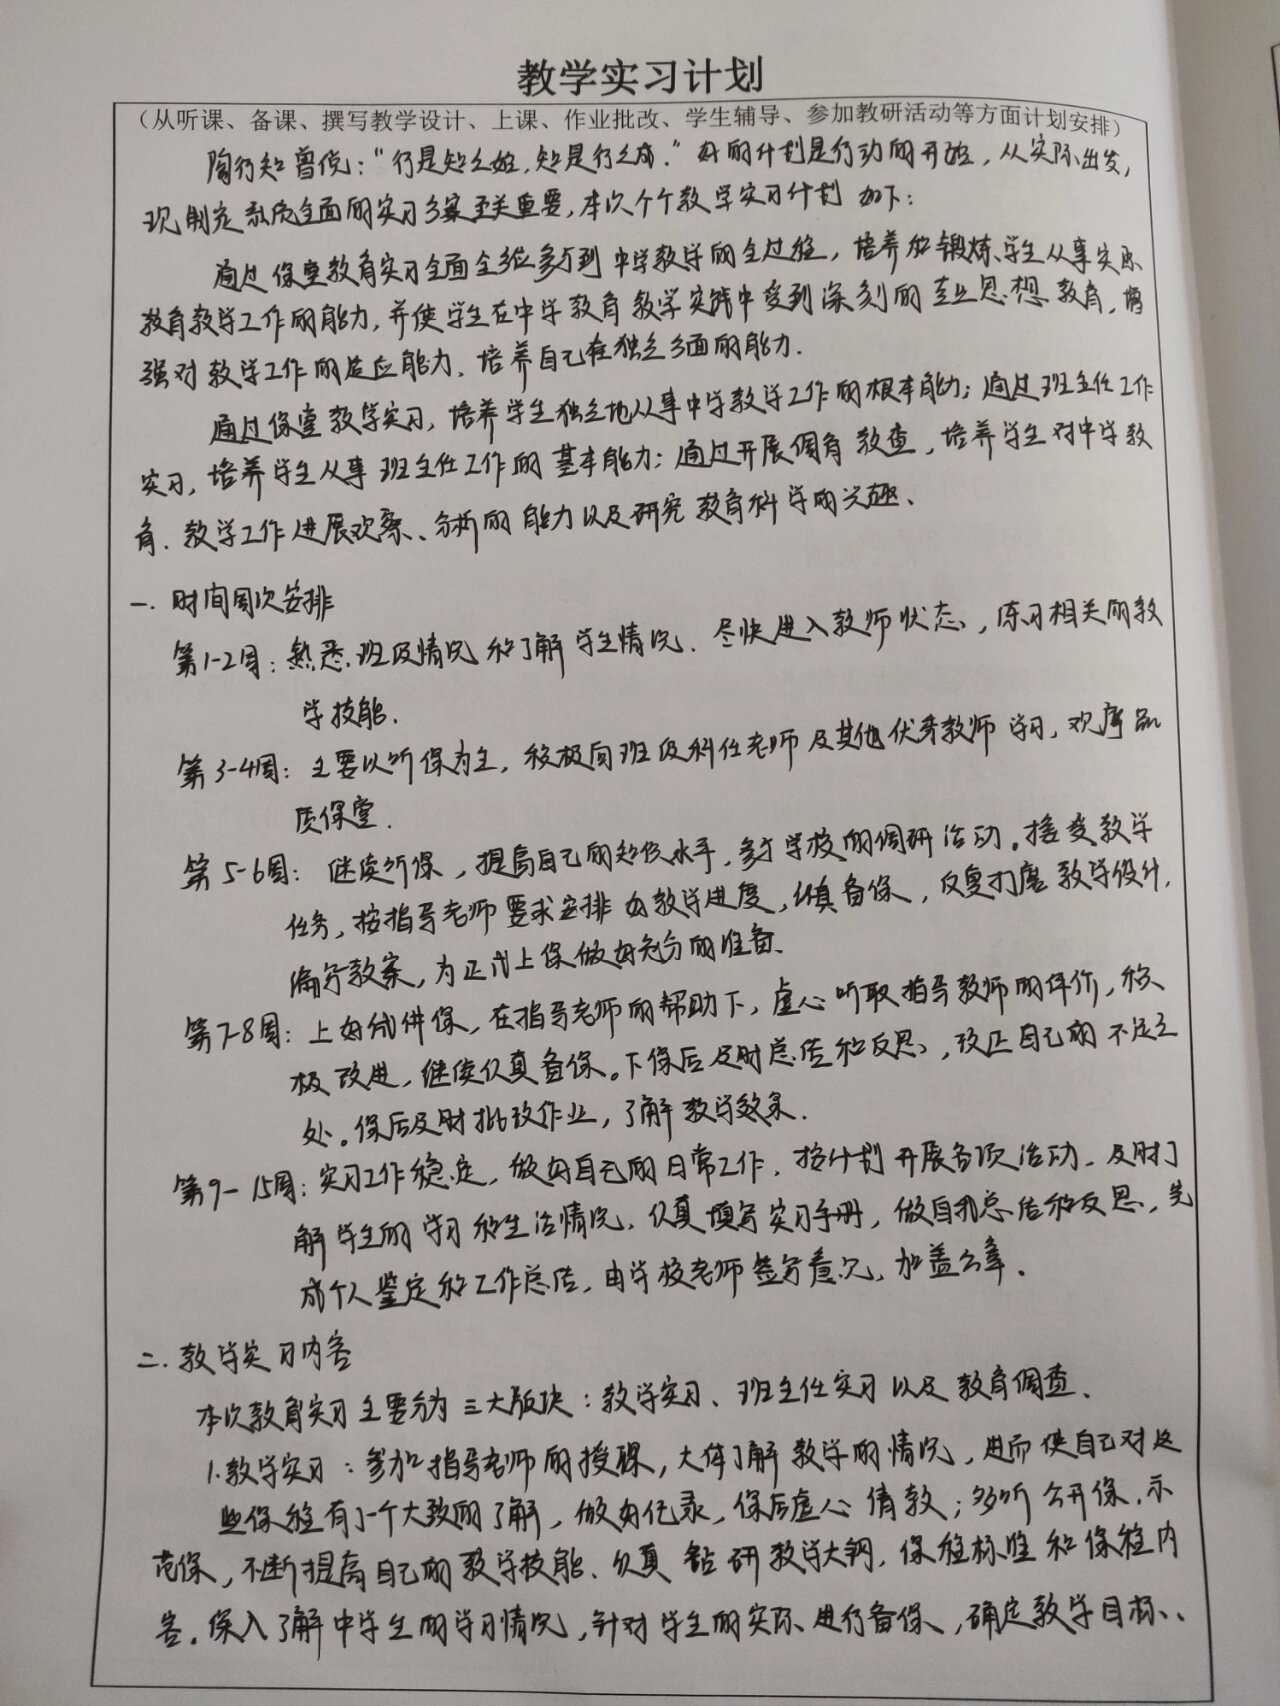 教学实习计划
（从听课、备课、撰写教学设计、上课、作业批改、学生辅导、参加教研活动等方面计划安排）
陶行知曾说："行是知之始，知是行之成。"好的计划是行动的开始，从实际出发，
现制定系统全面的实习方案至关重要，本次个个教学实习计划如下：
通过课堂教育实习全面全方位参与到中学教学的全过程，培养和锻炼学生从事实际
教育教学工作的能力，并使学生在中学教育教学实践中受到深刻的专业思想教育，增
强对教学工作的适应能力．培养自己在独立方面的能力．
通过课堂教学实习，培养学生独立地从事中学教学工作的根本能力；通过班主任工作
实习，培养学生从事班主任工作的基本能力；通过开展调育教查，培养学生对中学教
育．教学工作进展观察、分析的能力以及研究教育科学的兴趣、
一．时间周次安排
第1-2周：熟悉班级情况和了解学生情况．尽快进入教师状态，练习相关的教
学技能．
第3-4周：主要以听课为主，积极向班级科任老师及其他优秀教师学习，观摩品
质课堂．
第5-6周：继续听课，提高自己的知识水平，参与学校的调研活动。接受教学
任务，按指导老师要求安排好教学进度，认真备课，反复打磨教学设计，
编写教案，为正式上课做好充分的准备．
第7-8周：上好每件课，在指导老师的帮助下，虚心听取指导教师的评价，积
极改进，继续认真备课。下课后及时总结和反思，改正自己的不足之
处。课后及时批改作业，了解教学效果．
第9-15周：实习工作稳定，做好自己的日常工作．按计划开展各项活动．及时了
解学生的学习和生活情况．认真填写实习手册，做自我总结和反思，完
成个人鉴定和工作总结，由学校老师签写意见，加盖公章．
二．教学实习内容
本次教育实习主要分为三大版块：教学实习、班主任实习以及教育调查．
1．教学实习：参加指导老师的授课，大体了解教学的情况，进而使自己对这
些课程有了一个大致的了解，做好记录，课后虚心请教；多听公开课．示
范课，不断提高自己的教学技能．认真钻研教学大纲，课程标准和课程内
容。深入了解中学生的学习情况，针对学生的实际进行备课，确定教学目标、